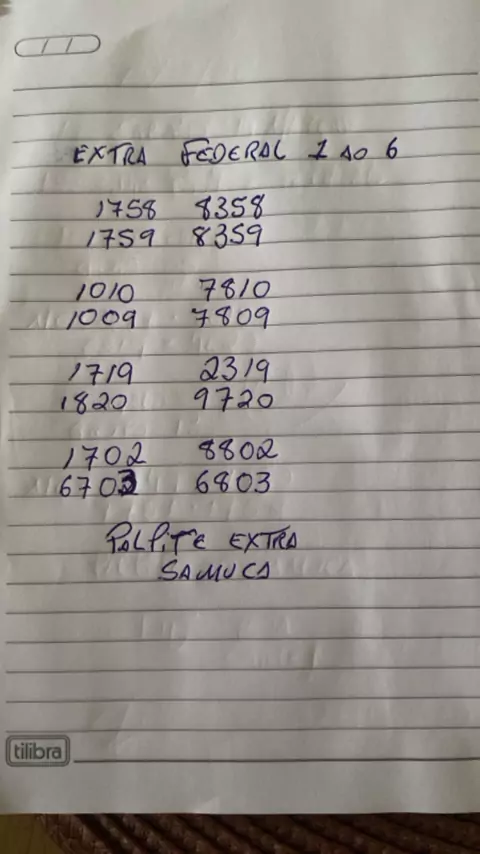 / /
EXTRA FEDERAL 1 AO 6
1758 8358
1759 8359
1010 7810
1009 7809
1719 2319
1820 9720
1702 8802
6703 6803
PALPITE EXTRA
SAMUCA
tilibra